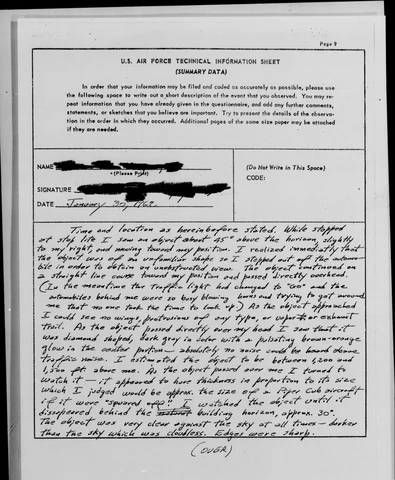 Page 9
U.S. AIR FORCE TECHNICAL INFORMATION SHEET
(SUMMARY DATA)
In order that your information may be filed and coded as accurately as possible, please use
the following space to write out a short description of the event that you observed. You may re-
peat information that you have already given in the questionnaire, and add any further comments,
statements, or sketches that you believe are important. Try to present the details of the observa-
tion in the order in which they occurred. Additional pages of the same size paper may be attached
if they are needed.
NAME
(Please Print)
(Do Not Write in This Space)
CODE:
SIGNATURE
DATE January 30, 1962
Time and location as hereinbefore stated. While stopped
at stop lite I saw an object about 45° above the horizon, slightly
to my right, and moving toward my position. I realized immediately that
the object was of an unfamiliar shape so I stepped out of the automo-
bile in order to obtain an unobstructed view. The object continued on
a straight line course toward my position and passed directly overhead.
(In the meantime the traffic light had changed to "GO" and the
automobiles behind me were so busy blowing horns and trying to get around
me that no one took the time to look up) As the object approached
I could see no wings, protrusions of any type, or vapor or exhaust
trail. As the object passed directly over my head I saw that it
was diamond shaped, dark gray in color with a pulsating brown-orange
glow in the center portion — absolutely no noise could be heard above
traffic noise. I estimated the object to be between 1,200 and
1,500 ft above me. As the object passed over me I turned to
watch it — it appeared to have thickness in proportion to its size
which I judged would be approx. the size of a Piper Cub aircraft
if it were "squared off". I watched the object until it
disappeared behind the building horizon, approx. 30°.
The object was very clear against the sky at all times — darker
than the sky which was cloudless. Edges were sharp.
(OVER)